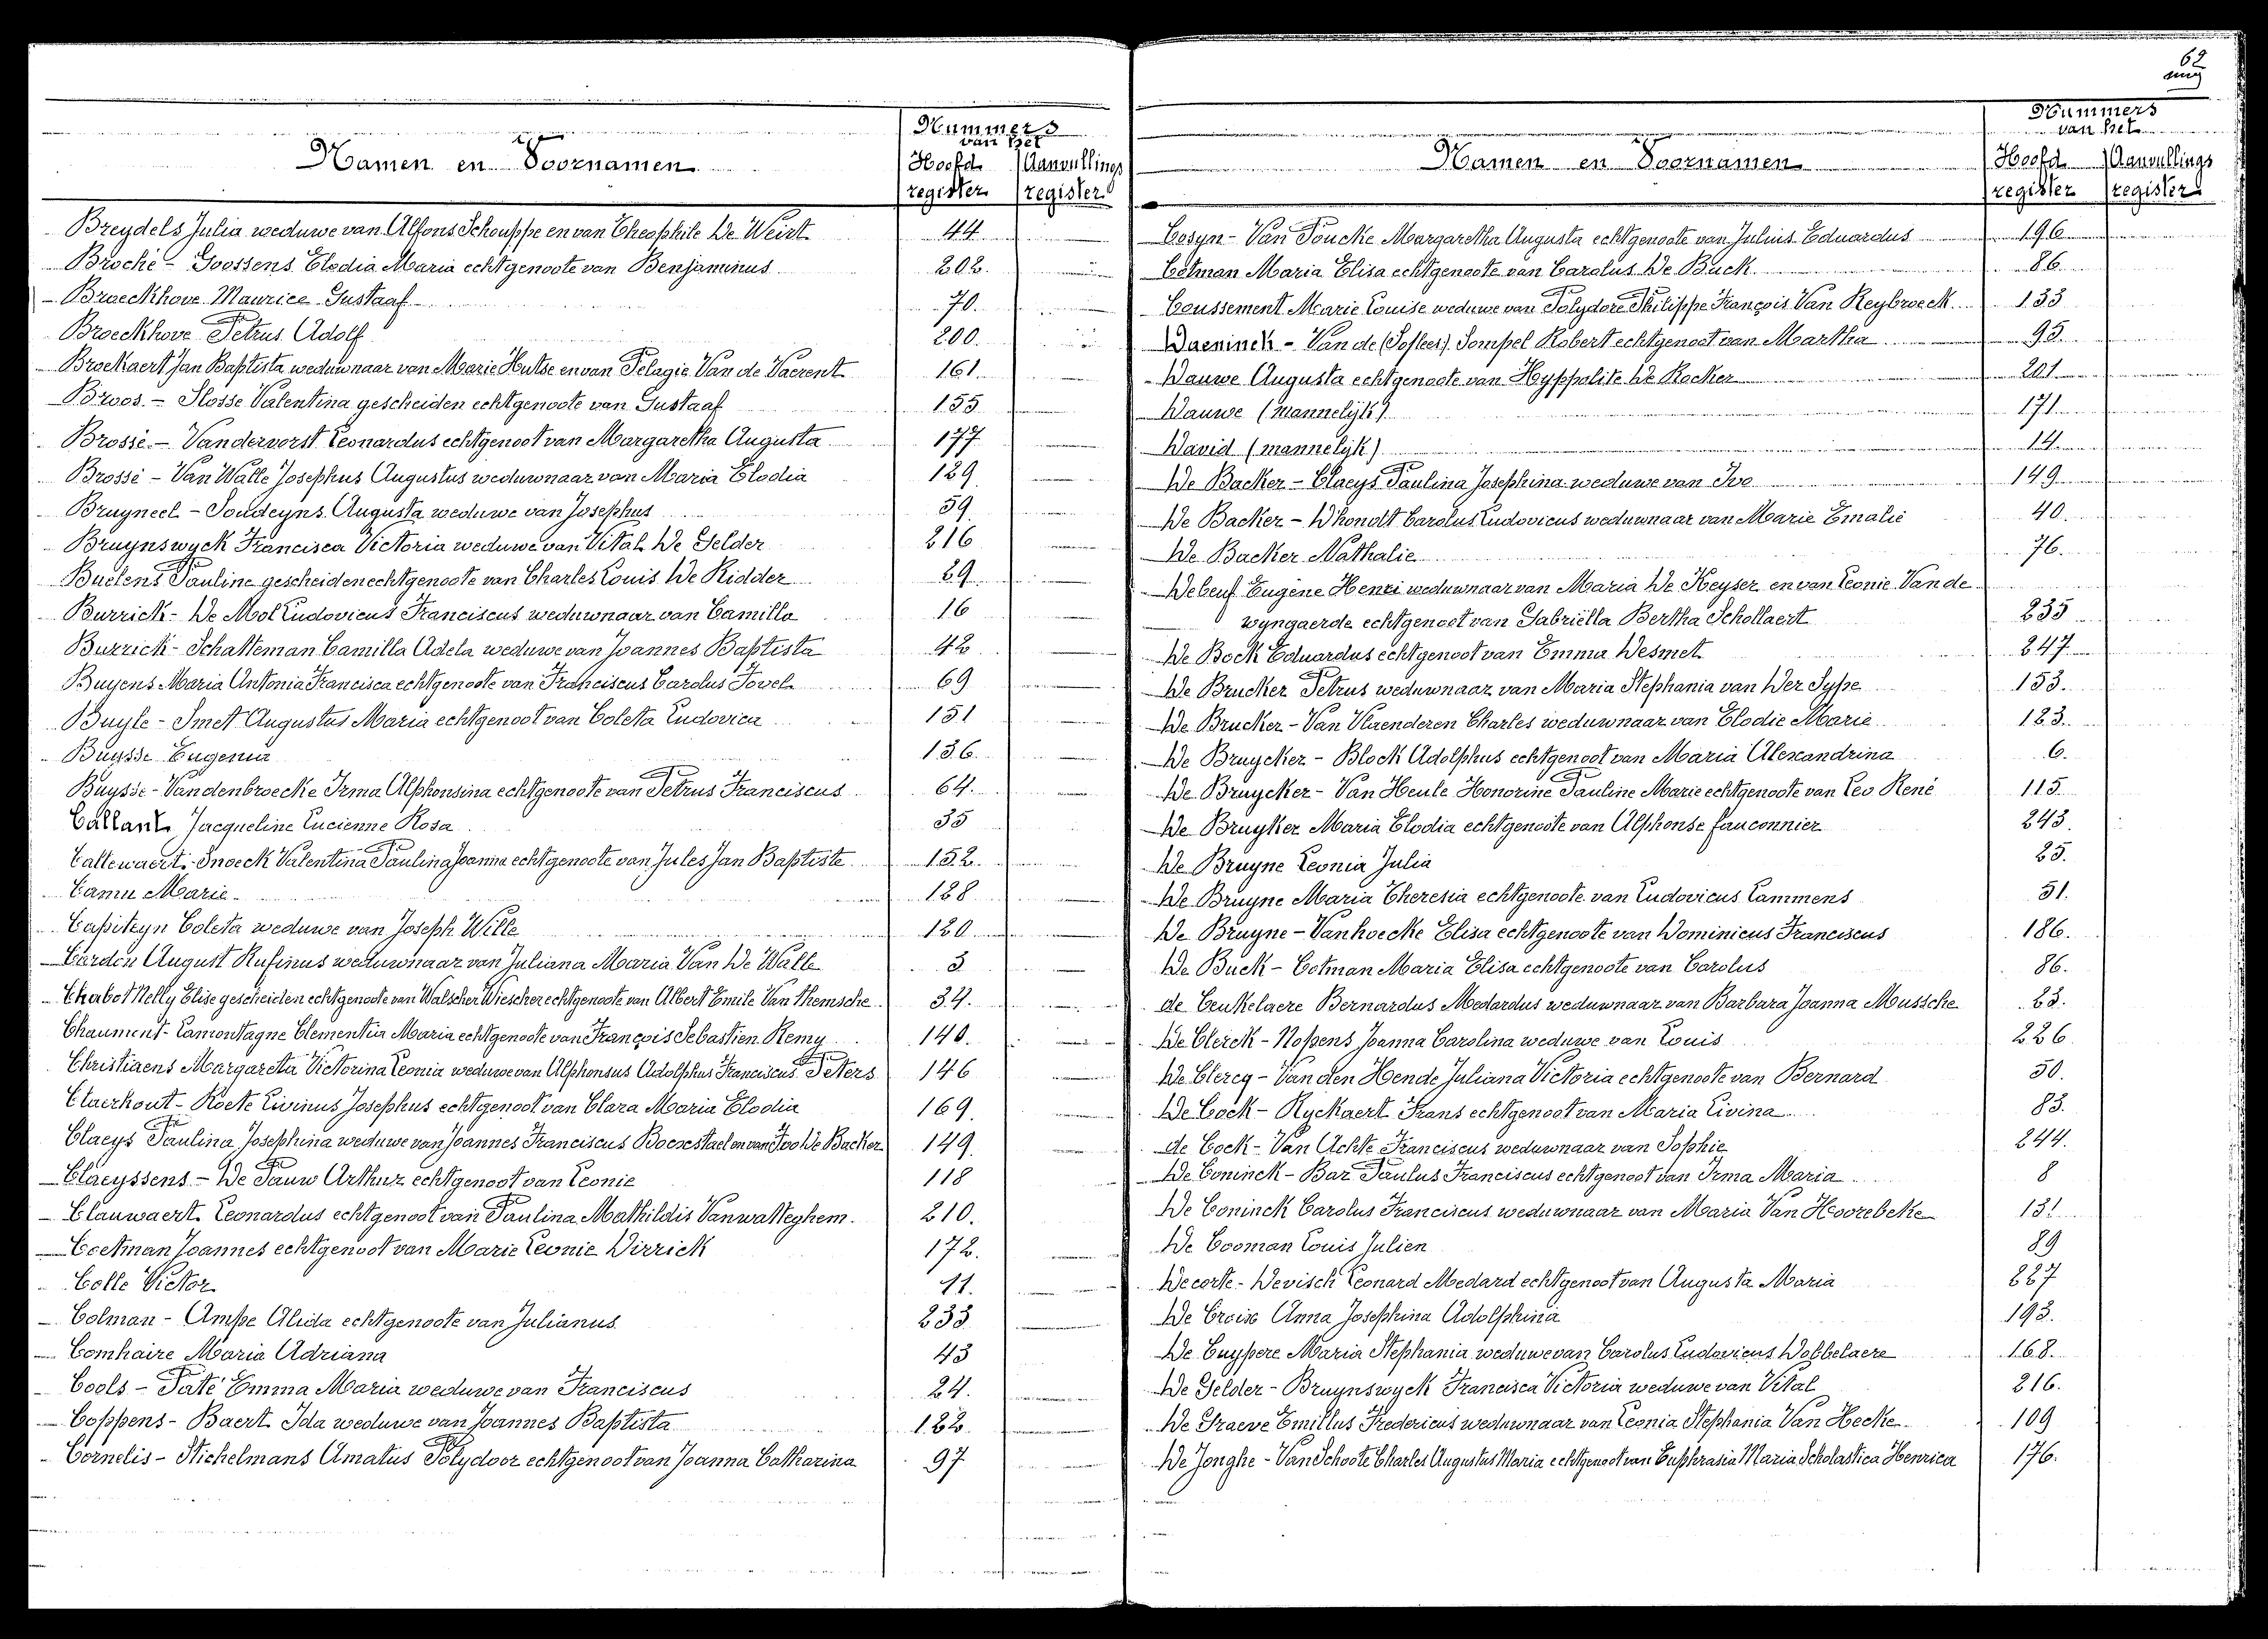 62
Namen en Voornamen
Nummers
van het
Hoofd Aanvullings
register register
Breydels Julia weduwe van Alfons Schouppe en van Theophile De Weirt 44
Broché - Goossens Elodia Maria echtgenoote van Benjaminus 202.
Broeckhove Maurice Gustaaf 70.
Broeckhove Petrus Adolf 200.
Broekaert Jan Baptista weduwnaar van Marie Hutse en van Pelagie Van de Vaerent 161.
Broos. - Slosse Valentina gescheiden echtgenoote van Gustaaf 155
Brossé - Vandervorst Leonardus echtgenoot van Margaretha Augusta 177
Brossé - Van Walle Josephus Augustus weduwnaar van Maria Elodia 129
Bruyneel - Soudeyns Augusta weduwe van Josephus 59
Bruynswyck Francisca Victoria weduwe van Vital De Gelder 216
Buelens Pauline gescheiden echtgenoote van Charles Louis De Ridder 29
Burrick - De Mol Ludovicus Franciscus weduwnaar van Camilla 16
Burrick - Schatteman Camilla Adela weduwe van Joannes Baptista 42
Buyens Maria Antonia Francisca echtgenoote van Franciscus Carolus Tovel 69
Buyle - Smet Augustus Maria echtgenoot van Coleta Ludovica 151
Buysse Eugenia 136.
Buysse - Vandenbroecke Irma Alphonsina echtgenoote van Petrus Franciscus 64.
Callant Jacqueline Lucienne Rosa 35
Callewaert - Snoeck Valentina Paulina Joanna echtgenoote van Jules Jan Baptiste 152.
Camu Marie 128
Capiteyn Coleta weduwe van Joseph Wille 120
Cardon August Rufinus weduwnaar van Juliana Maria Van De Walle 3
Chabot Nelly Elise gescheiden echtgenoote van Walscher Wiescher echtgenoote van Albert Emile Van Themsche 34.
Chaumont - Lamontagne Clementia Maria echtgenoote van François Sebastien Remy 140.
Christiaens Margaretha Victorina Leonia weduwe van Alphonsus Adolphus Franciscus Peters 146
Claerhout - Roete Livinus Josephus echtgenoot van Clara Maria Elodia 169.
Claeys Paulina Josephina weduwe van Joannes Franciscus Boerestael en van Ivo De Backer 149.
Claeyssens - De Pauw Arthur echtgenoot van Leonie 118
Clauwaert Leonardus echtgenoot van Paulina Mathildis Vanwatteghem. 210.
Coetman Joannes echtgenoot van Marie Leonie Dirrick 172.
Colle Victor 11.
Colman - Ampe Alida echtgenoote van Julianus 233
Comhaire Maria Adriana 43
Cools - Paté Emma Maria weduwe van Franciscus 24.
Coppens - Baert Ida weduwe van Joannes Baptista 122.
Cornelis - Stichelmans Amatus Polydoor echtgenoot van Joanna Catharina 97
Namen en Voornamen
Nummers
van het
Hoofd Aanvullings
register register
Cosyn - Van Poucke Margaretha Augusta echtgenoote van Julius Eduardus 196
Cotman Maria Elisa echtgenoote van Carolus De Buck 86
Coussement Marie Louise weduwe van Polydore Philippe François Van Reybroeck 133
Daeninck - Van de Sompel Robert echtgenoot van Martha 95
Dauwe Augusta echtgenoote van Hyppolite De Backer 201
Dauwe (mannelijk) 171
David (mannelijk) 14
De Backer - Claeys Paulina Josephina weduwe van Ivo 149.
De Backer - Dhondt Carolus Ludovicus weduwnaar van Marie Emalie 40.
De Backer Nathalie 76.
Debeuf Eugène Henri weduwnaar van Maria De Keyser en van Leonie Van de
wyngaerde echtgenoot van Gabriëlla Bertha Schollaert 235
De Bock Eduardus echtgenoot van Emma Desmet 247
De Brucker Petrus weduwnaar van Maria Stephania van Der Sype 153.
De Brucker - Van Vlaenderen Charles weduwnaar van Elodie Marie 123.
De Bruycker - Block Adolphus echtgenoot van Maria Alexandrina 6.
De Bruycker - Van Heule Honorine Pauline Marie echtgenoote van Leo René 115
De Bruyker Maria Elodia echtgenoote van Alphonse Fauconnier 243.
De Bruyne Leonia Julia 25.
De Bruyne Maria Theresia echtgenoote van Ludovicus Lammens 51.
De Bruyne - Vanhoecke Elisa echtgenoote van Dominicus Franciscus 186.
De Buck - Cotman Maria Elisa echtgenoote van Carolus 86.
de Ceukelaere Bernardus Medardus weduwnaar van Barbara Joanna Mussche 23.
De Clerck - Nopens Joanna Carolina weduwe van Louis 226
De Clercq - Van den Hende Juliana Victoria echtgenoote van Bernard 50.
De Cock - Ryckaert Frans echtgenoot van Maria Livina 83.
de Cock - Van Achte Franciscus weduwnaar van Sophie 244.
De Coninck - Bar Paulus Franciscus echtgenoot van Irma Maria 8
De Coninck Carolus Franciscus weduwnaar van Maria Van Hoorebeke 131
De Cooman Louis Julien 89
Decorte - Devisch Leonard Medard echtgenoot van Augusta Maria 227
De Croix Anna Josephina Adolphina 193.
De Cuypere Maria Stephania weduwe van Carolus Ludovicus Dobbelaere 168.
De Gelder - Bruynswyck Francisca Victoria weduwe van Vital 216.
De Graeve Emillus Fredericus weduwnaar van Leonia Stephania Van Hecke 109
De Jonghe - Van Schoote Charles Augustus Maria echtgenoot van Euphrasia Maria Scholastica Henrica 176.